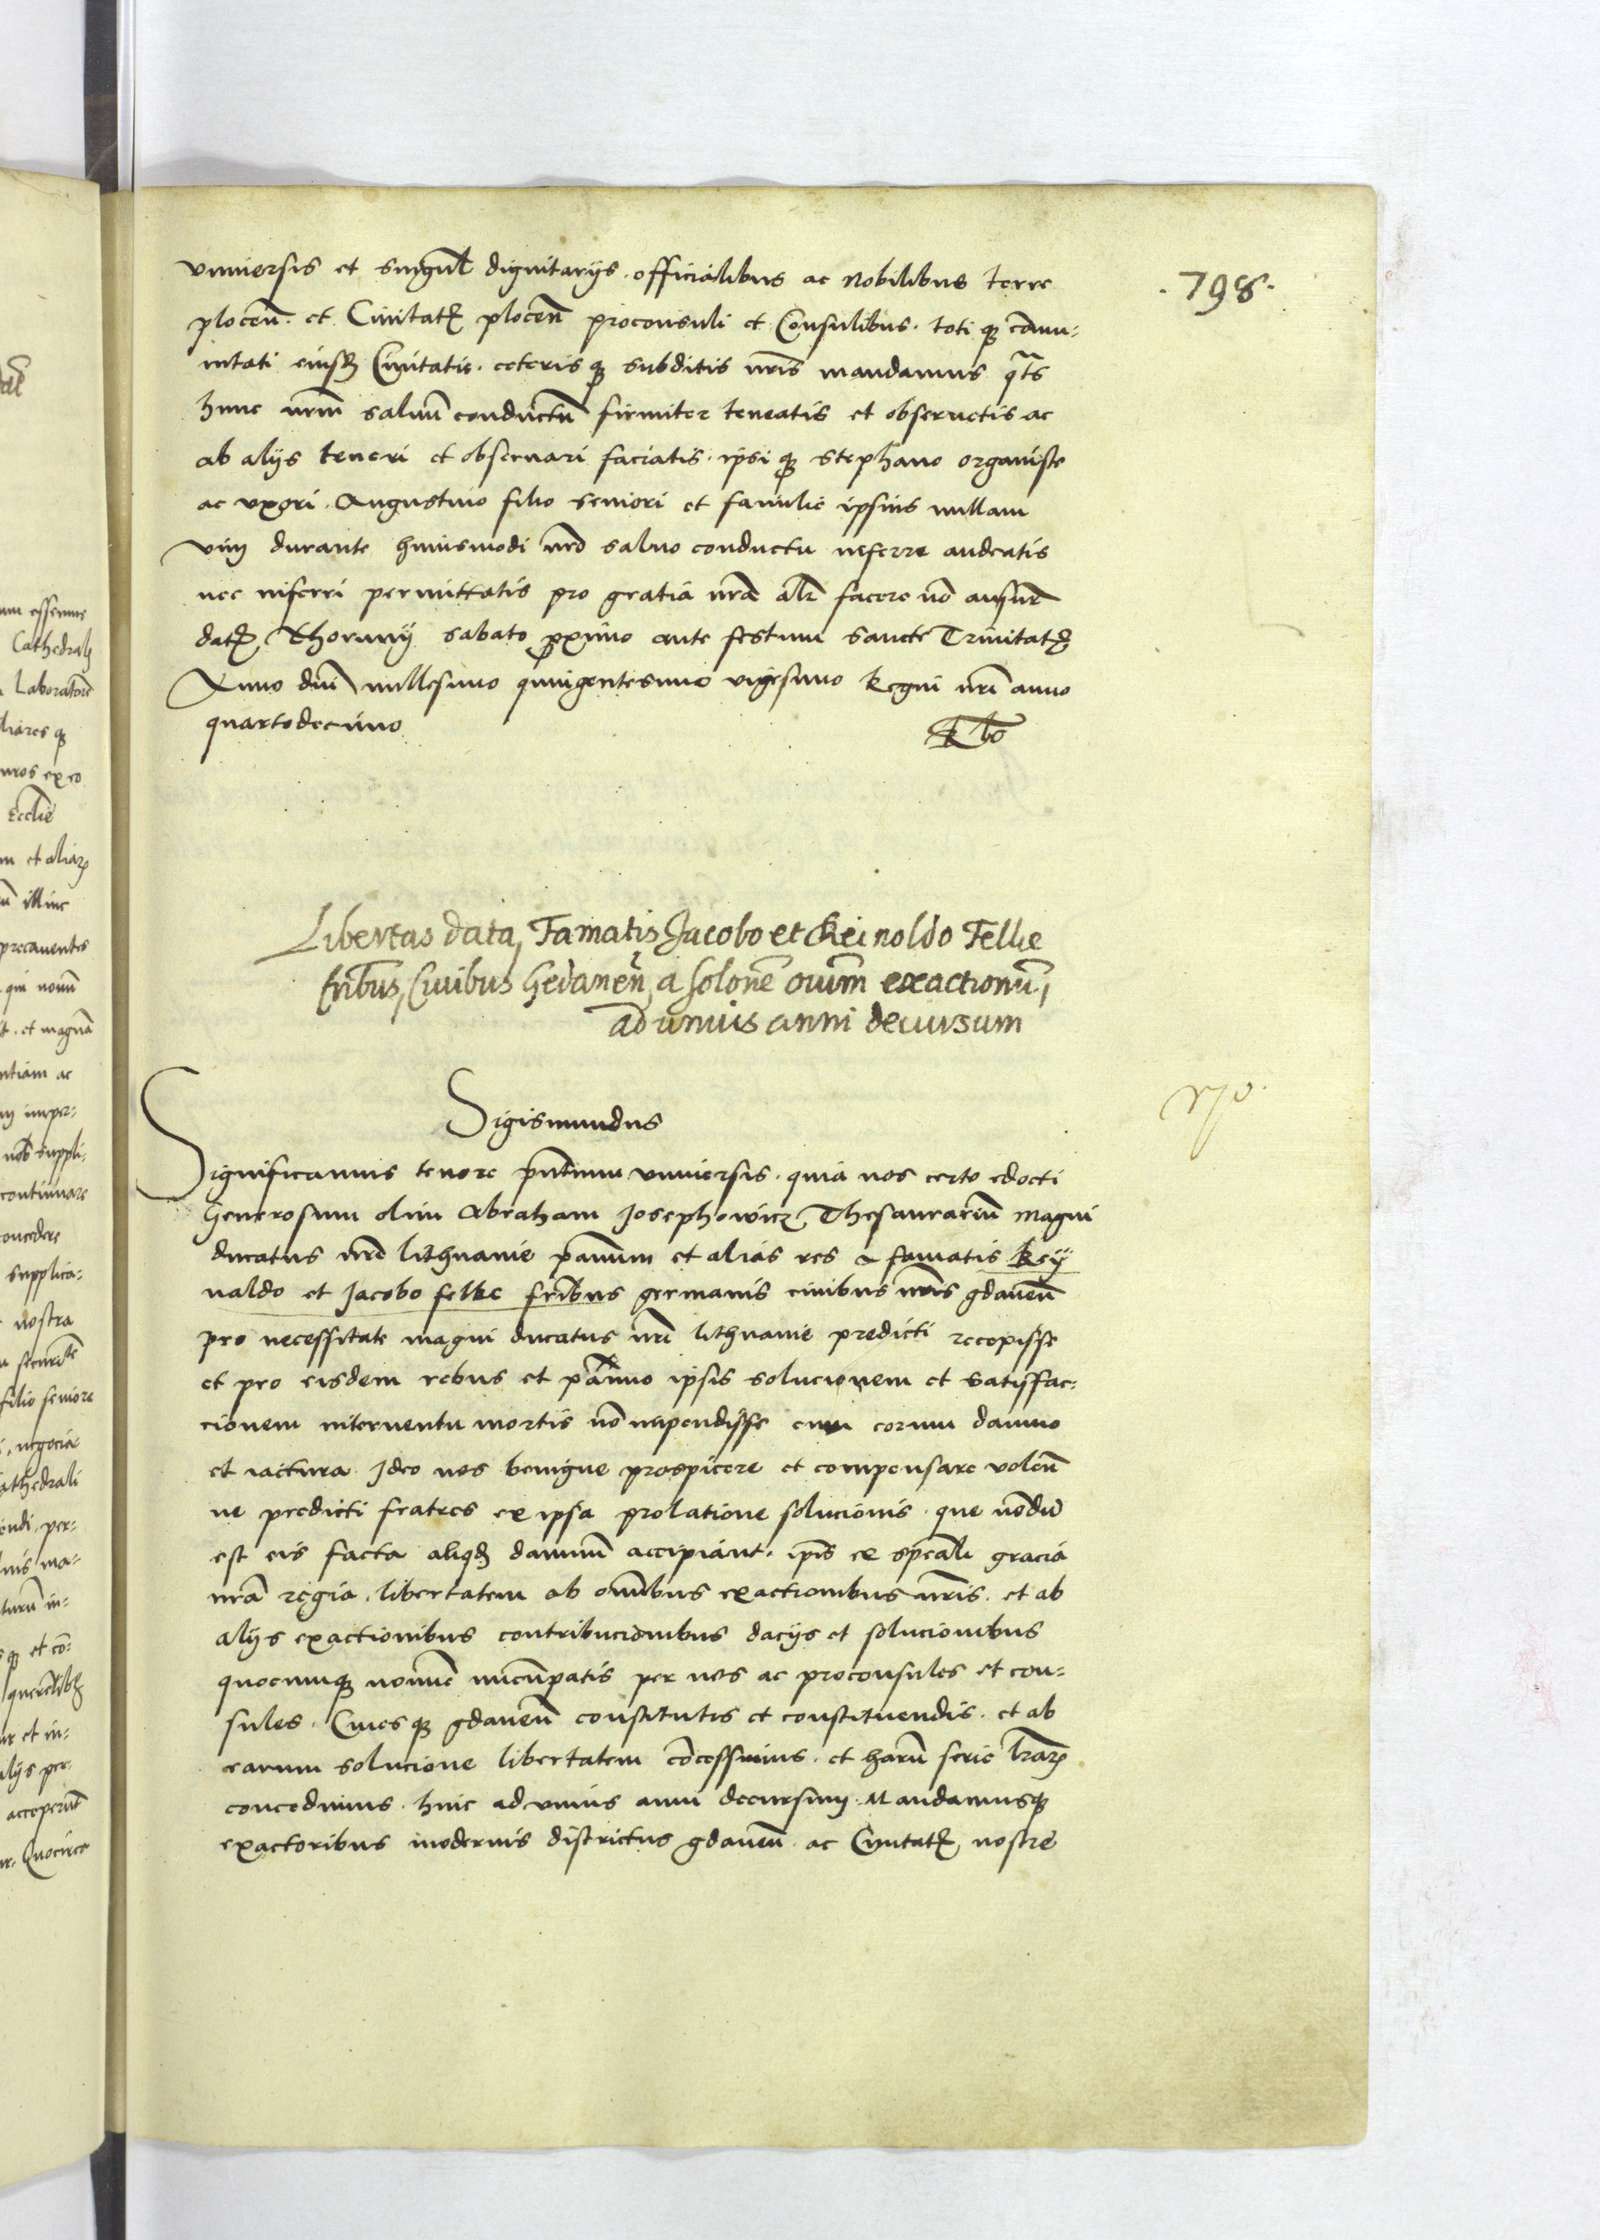 ·798·
vniuersis et singul dignitarijs. officialibus ac nobilibus terre
plocen̄. et Ciuitat plocen̄ proconsuli et Consulibus. toti qꝫ cōmu-
nitati eiusdꝫ Ciuitatis. ceteris qꝫ subditis nr̄is mandamus qtꝰ
hunc nr̄m saluū conductū firmiter teneatis et obseruetis ac
ab alijs teneri et obseruari faciatis. ipsi qꝫ stephano organiste
ac vxori. Augustino filio seniori et familie ipsius nullam
vim durante huiusmodi nr̄o saluo conductu inferre audeatis
nec inferri permittatis pro gratia nr̄a alr̄ facere nō ausur̄
dat Thorunij sabato proximo ante festum sancte Trinitat
Anno dn̄i millesimo quingentesimo vigesimo Regni nr̄i anno
quartodecimo
Libertas data, Famatis Jacobo et Reinoldo Felke
fribus, Ciuibus Gedanen̄, a solōne oīum exactionū,
ad unius anni decursum
Sigismundus
Significamus tenore p̄ntium vniuersis. quia nos certo edocti
Generosum olim Abraham Josephowicz Thesaurariū magni
ducatus nr̄i lithuanie pannum et alias res a famatis Rey
naldo et Jacobo felke fribus germanis ciuibus nr̄is gdanen̄
pro necessitate magni ducatus nr̄i lithuanie predicti recepisse
et pro eisdem rebus et panno ipsis solucionem et satisfac-
cionem interuentu mortis nō impendisse cum eorum damno
et iactura Ideo nos benigne prospicere et compensare volen̄
ne predicti fratres ex ipsa prolatione solucionis. que nōdū
est eis facta aliqdꝫ damnū accipiant. ip̄is ex sp̄eali gracia
nr̄a regia. libertatem ab om̄ibus exactionibus nr̄is. et ab
alijs exactionibus contribucionibus dacijs et solucionibus
quocunqꝫ nomine nūcupatis per nos ac proconsules et con-
sules. Ciues qꝫ gdanen̄ constitutis et constituendis. et ab
earum solucione libertatem cōcessimus. et harū serie lr̄aꝝ
concedimus. hinc ad vnius anni decursum. Mandamusqꝫ
exactoribus modernis districtus gdanen̄ ac Ciuitat nostre